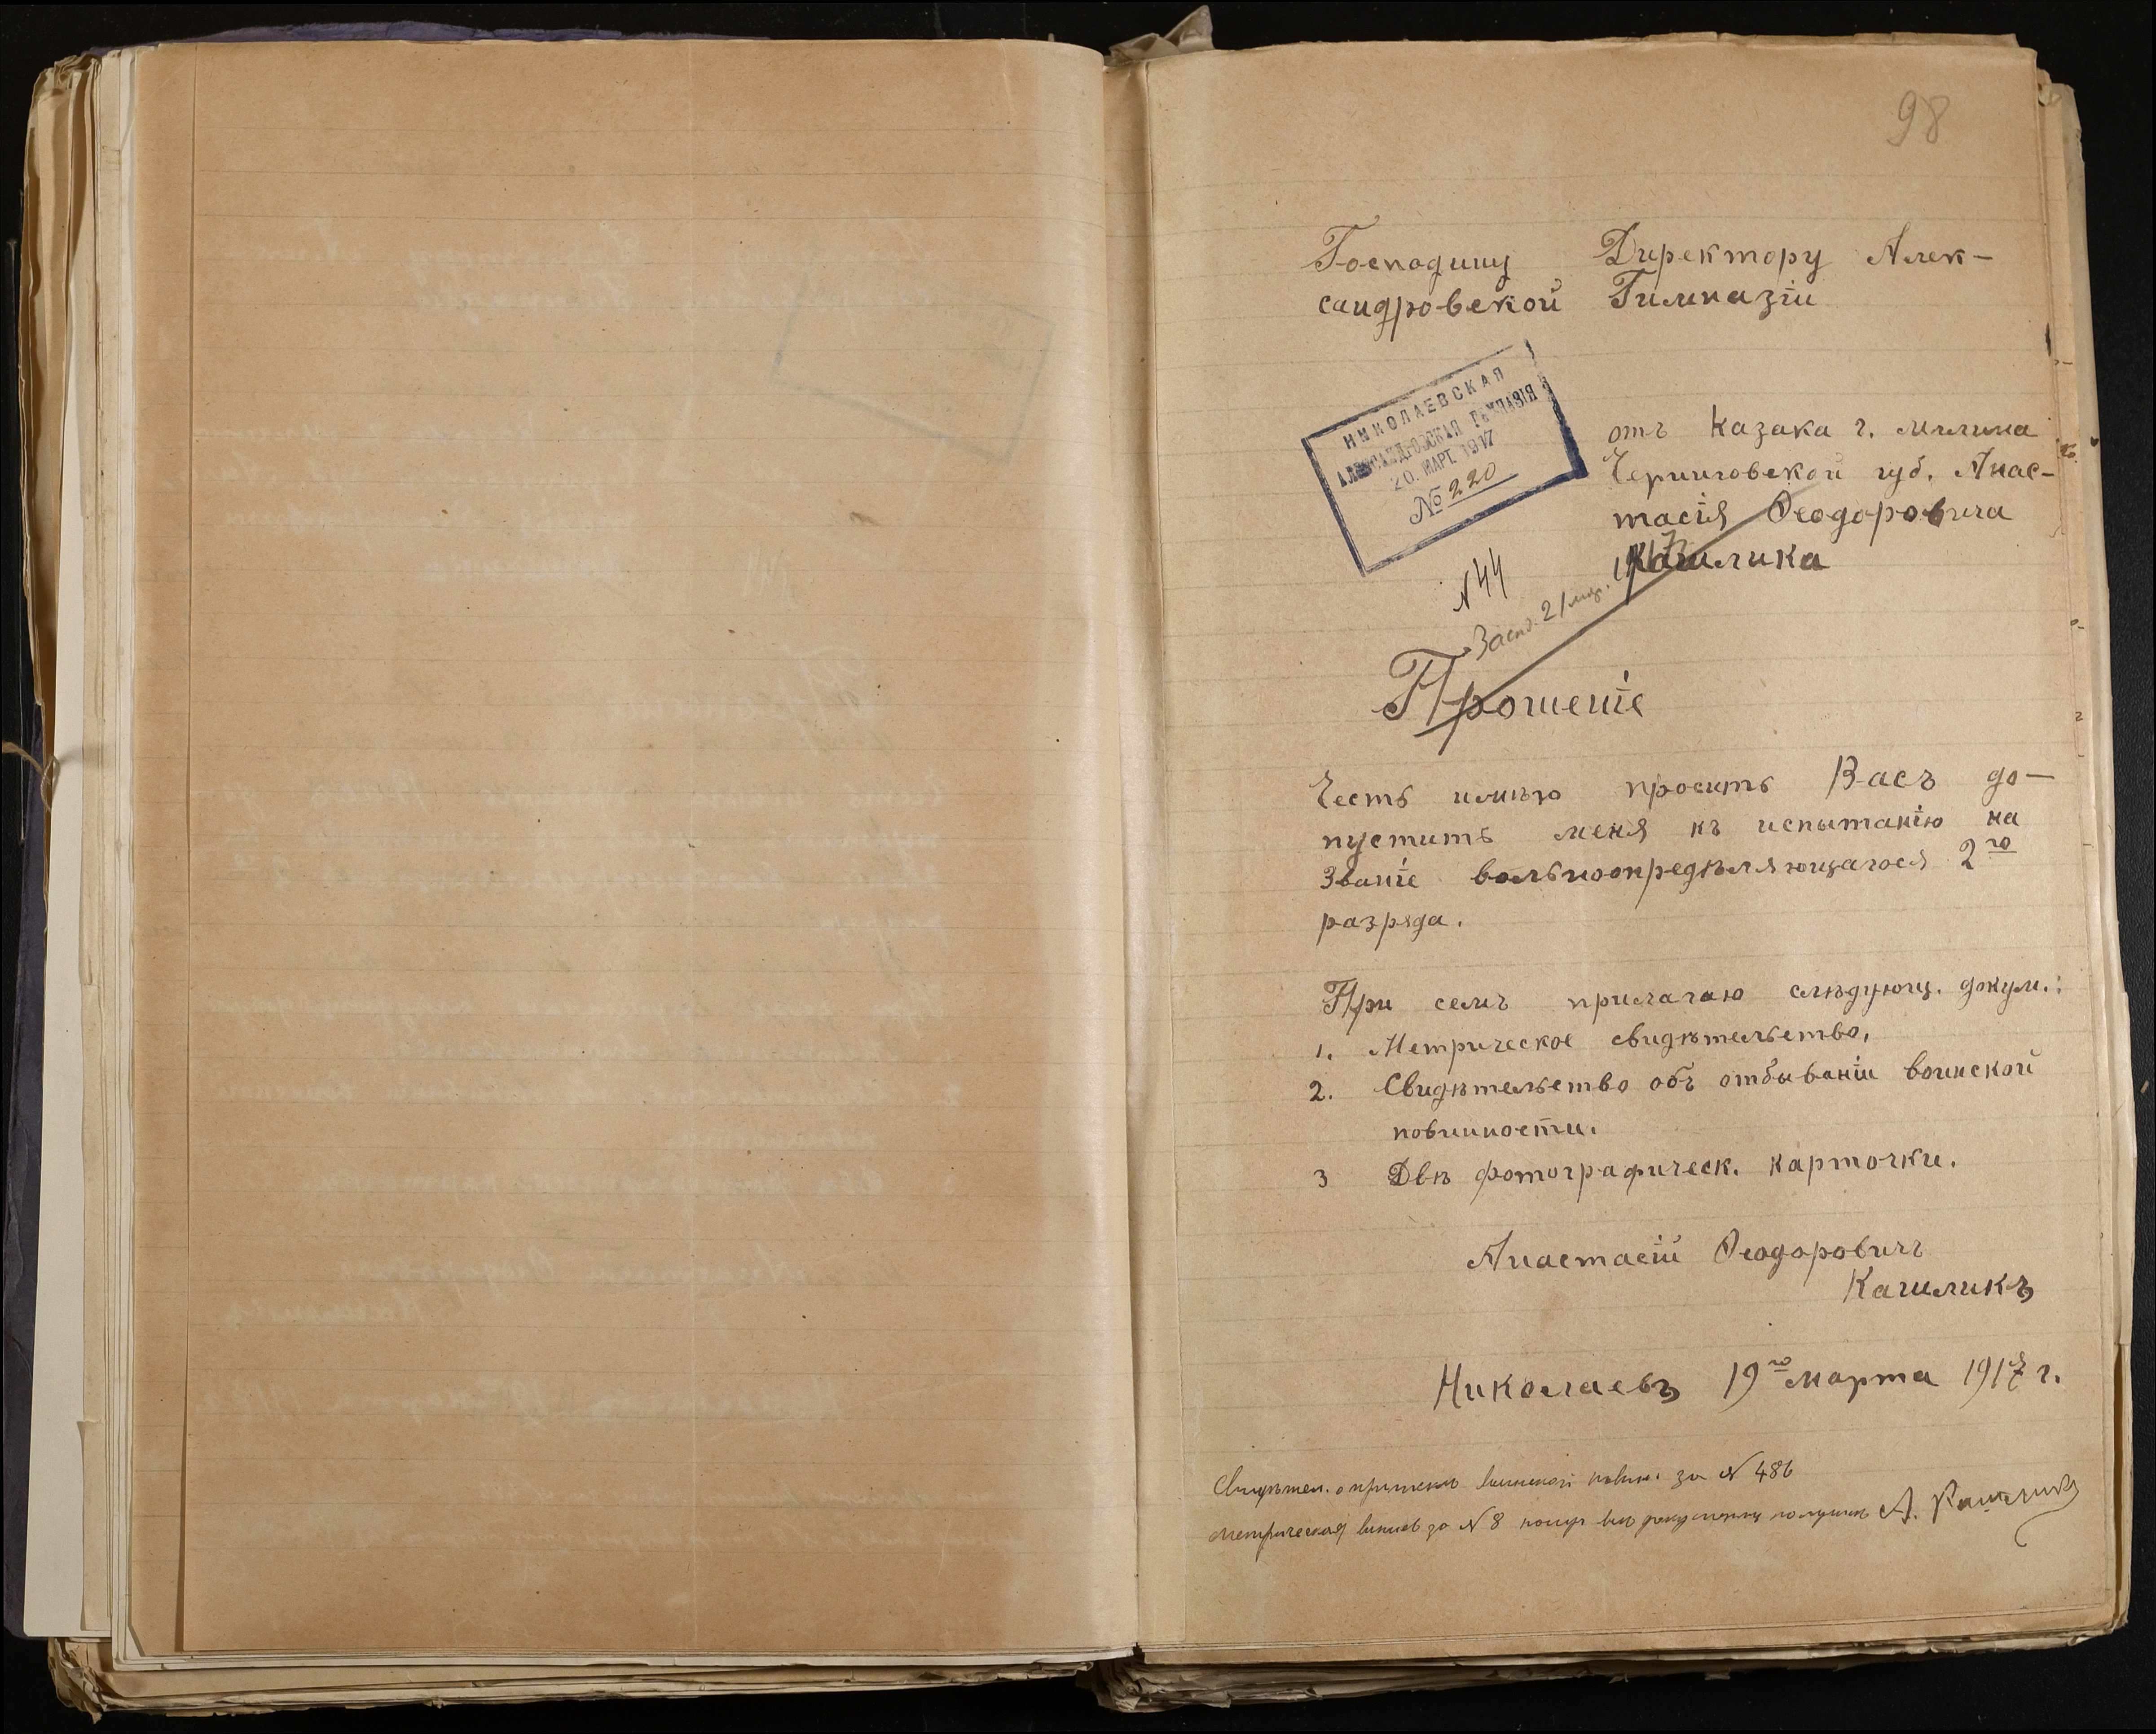 98
Господину Директору Алек-
сандровской Гимназіи
НИКОЛАЕВСКАЯ
АЛЕКСАНДРОВСКАЯ ГИМНАЗІЯ
20. МАРТ. 1917
№ 220
отъ Казака г. Мглина
Черниговской губ. Анас-
тасія Ѳеодоровича
Кашлика
N 44
21 мар. 1917
Прошеніе
Честь имѣю просить Васъ до-
пустить меня къ испытанію на
званіе вольноопредѣляющагося 2го
разряда.
При семъ прилагаю слѣдующ. докум.:
1. Метрическое свидѣтельство.
2. Свидѣтельство объ отбываніи воинской
повинности.
3 Двѣ фотографическ. карточки.
Анастасій Ѳеодоровичъ
Кашликъ
Николаевъ 19го марта 1917 г.
Свидѣтел. о припискѣ воинской повин. за N 486
метрическая выпись за N 8 документы получилъ А. Кашликъ